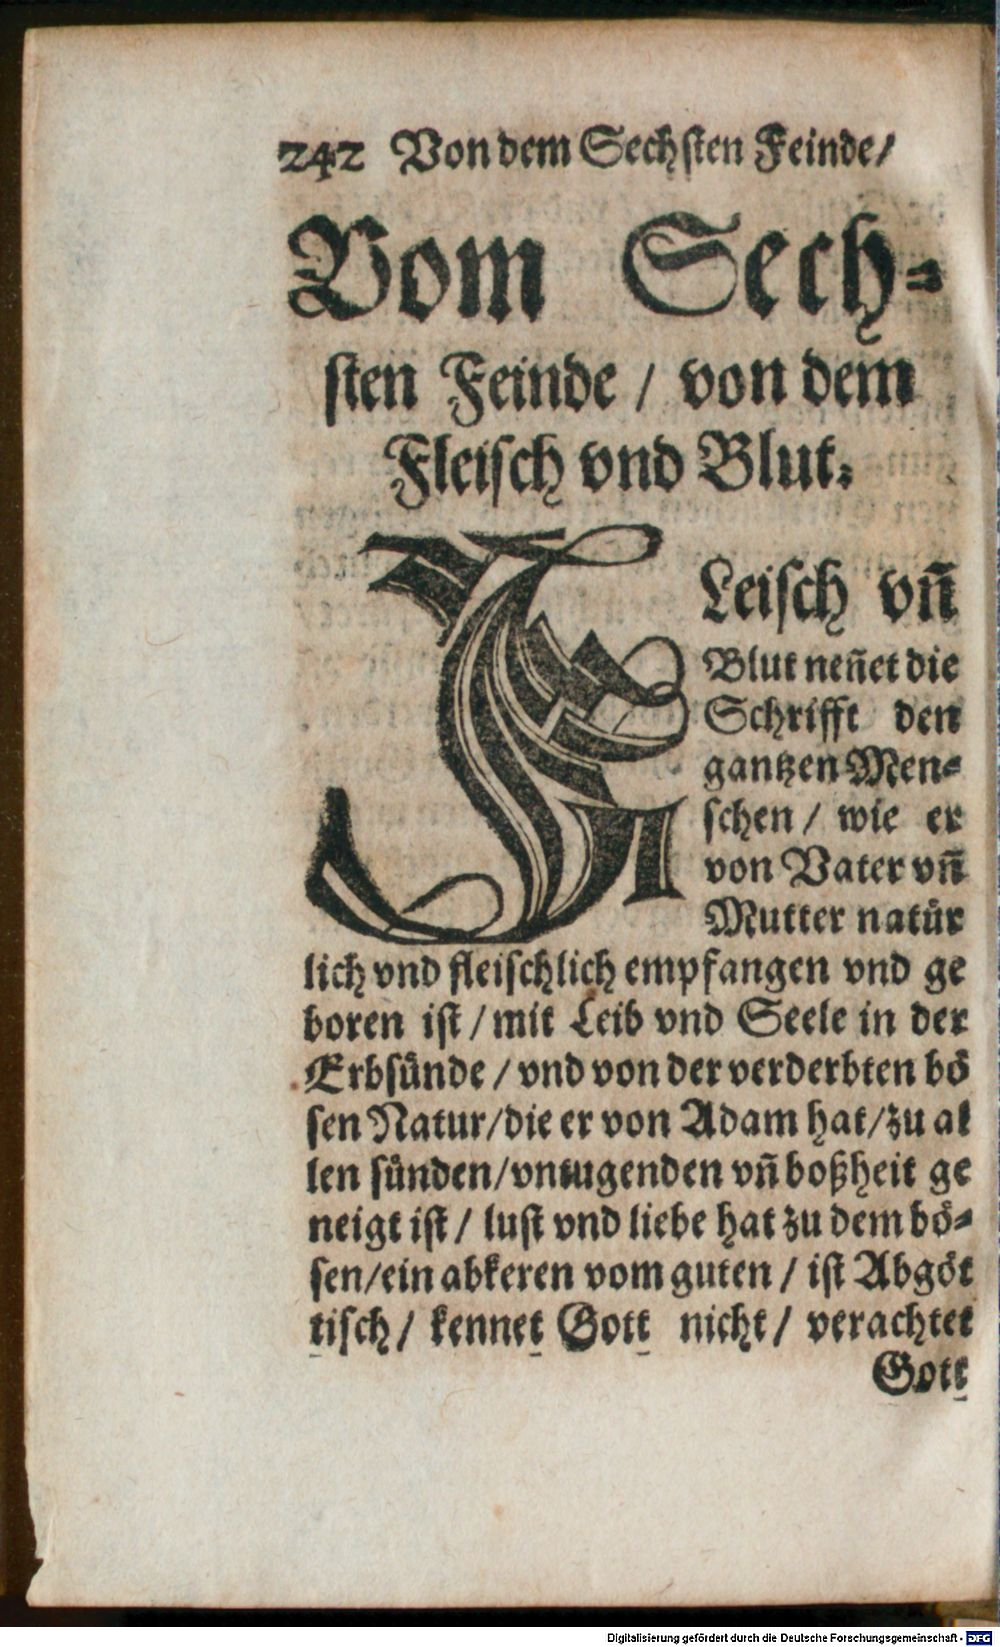 242 Von dem Sechsten Feinde/
Vom Sech-
sten Feinde / von dem
Fleisch vnd Blut.
FLeisch vñ
Blut neñet die
Schrifft den
gantzen Men-
schen / wie er
von Vater vñ
Mutter natür
lich vnd fleischlich empfangen vnd ge
boren ist / mit Leib vnd Seele in der
Erbsünde / vnd von der verderbten bö
sen Natur/die er von Adam hat/zu al
len sünden/vntugenden vñ boßheit ge
neigt ist / lust vnd liebe hat zu dem bö-
sen/ein abkeren vom guten / ist Abgöt
tisch / kennet Gott nicht / verachtet
Gott
Digitalisierung gefördert durch die Deutsche Forschungsgemeinschaft - DFG